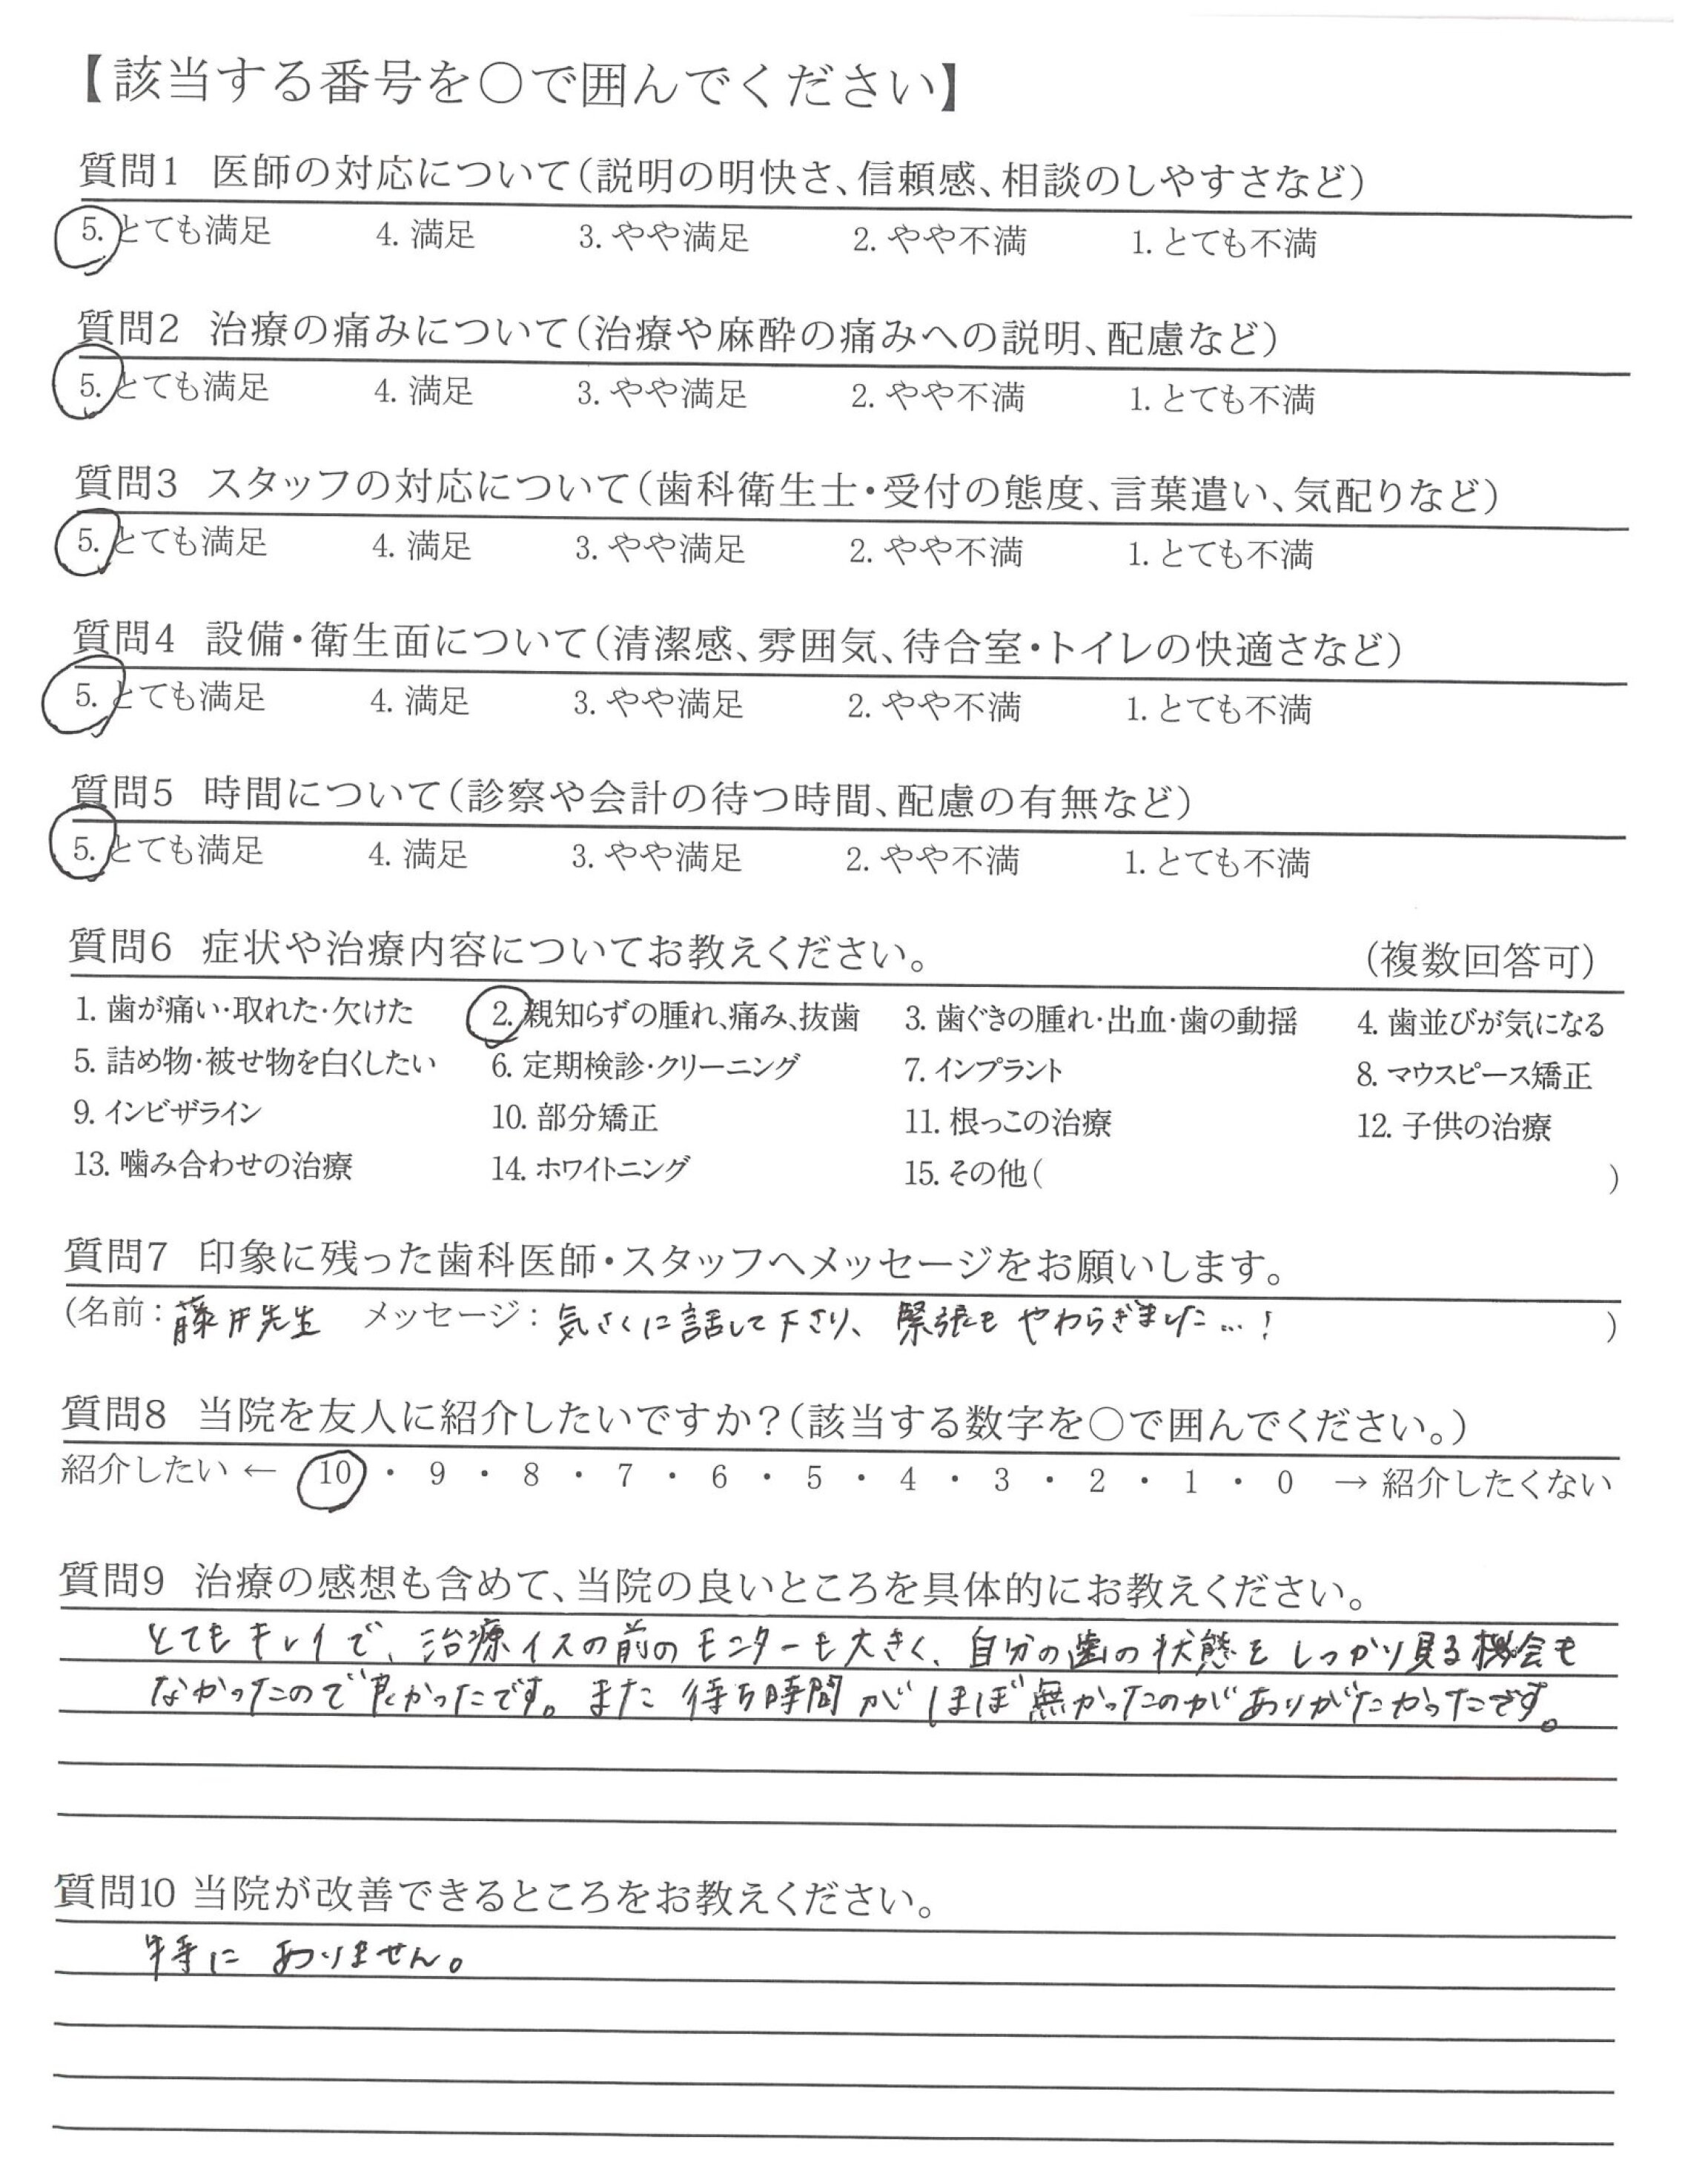 【該当する番号を○で囲んでください】
質問1 医師の対応について(説明の明快さ、信頼感、相談のしやすさなど)
5. とても満足 4. 満足 3. やや満足 2. やや不満 1. とても不満
質問2 治療の痛みについて(治療や麻酔の痛みへの説明、配慮など)
5. とても満足 4. 満足 3. やや満足 2. やや不満 1. とても不満
質問3 スタッフの対応について(歯科衛生士・受付の態度、言葉遣い、気配りなど)
5. とても満足 4. 満足 3. やや満足 2. やや不満 1. とても不満
質問4 設備・衛生面について(清潔感、雰囲気、待合室・トイレの快適さなど)
5. とても満足 4. 満足 3. やや満足 2. やや不満 1. とても不満
質問5 時間について(診察や会計の待つ時間、配慮の有無など)
5. とても満足 4. 満足 3. やや満足 2. やや不満 1. とても不満
質問6 症状や治療内容についてお教えください。 (複数回答可)
1. 歯が痛い・取れた・欠けた 2. 親知らずの腫れ、痛み、抜歯 3. 歯ぐきの腫れ・出血・歯の動揺 4. 歯並びが気になる
5. 詰め物・被せ物を白くしたい 6. 定期検診・クリーニング 7. インプラント 8. マウスピース矯正
9. インビザライン 10. 部分矯正 11. 根っこの治療 12. 子供の治療
13. 噛み合わせの治療 14. ホワイトニング 15. その他( )
質問7 印象に残った歯科医師・スタッフへメッセージをお願いします。
(名前：藤井先生 メッセージ：気さくに話して下さり、緊張もやわらぎました…! )
質問8 当院を友人に紹介したいですか?(該当する数字を○で囲んでください。)
紹介したい ← 10 ・ 9 ・ 8 ・ 7 ・ 6 ・ 5 ・ 4 ・ 3 ・ 2 ・ 1 ・ 0 → 紹介したくない
質問9 治療の感想も含めて、当院の良いところを具体的にお教えください。
とてもキレイで、治療イスの前のモニターも大きく、自分の歯の状態をしっかり見る機会も
なかったので良かったです。また待ち時間がほぼ無かったのがありがたかったです。
質問10 当院が改善できるところをお教えください。
特にありません。